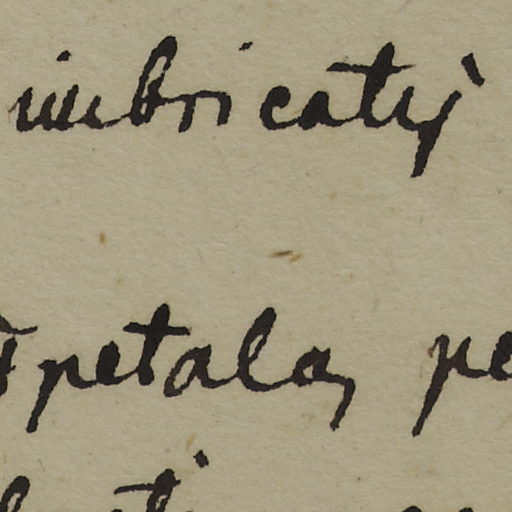 imbricatij
petala, pe